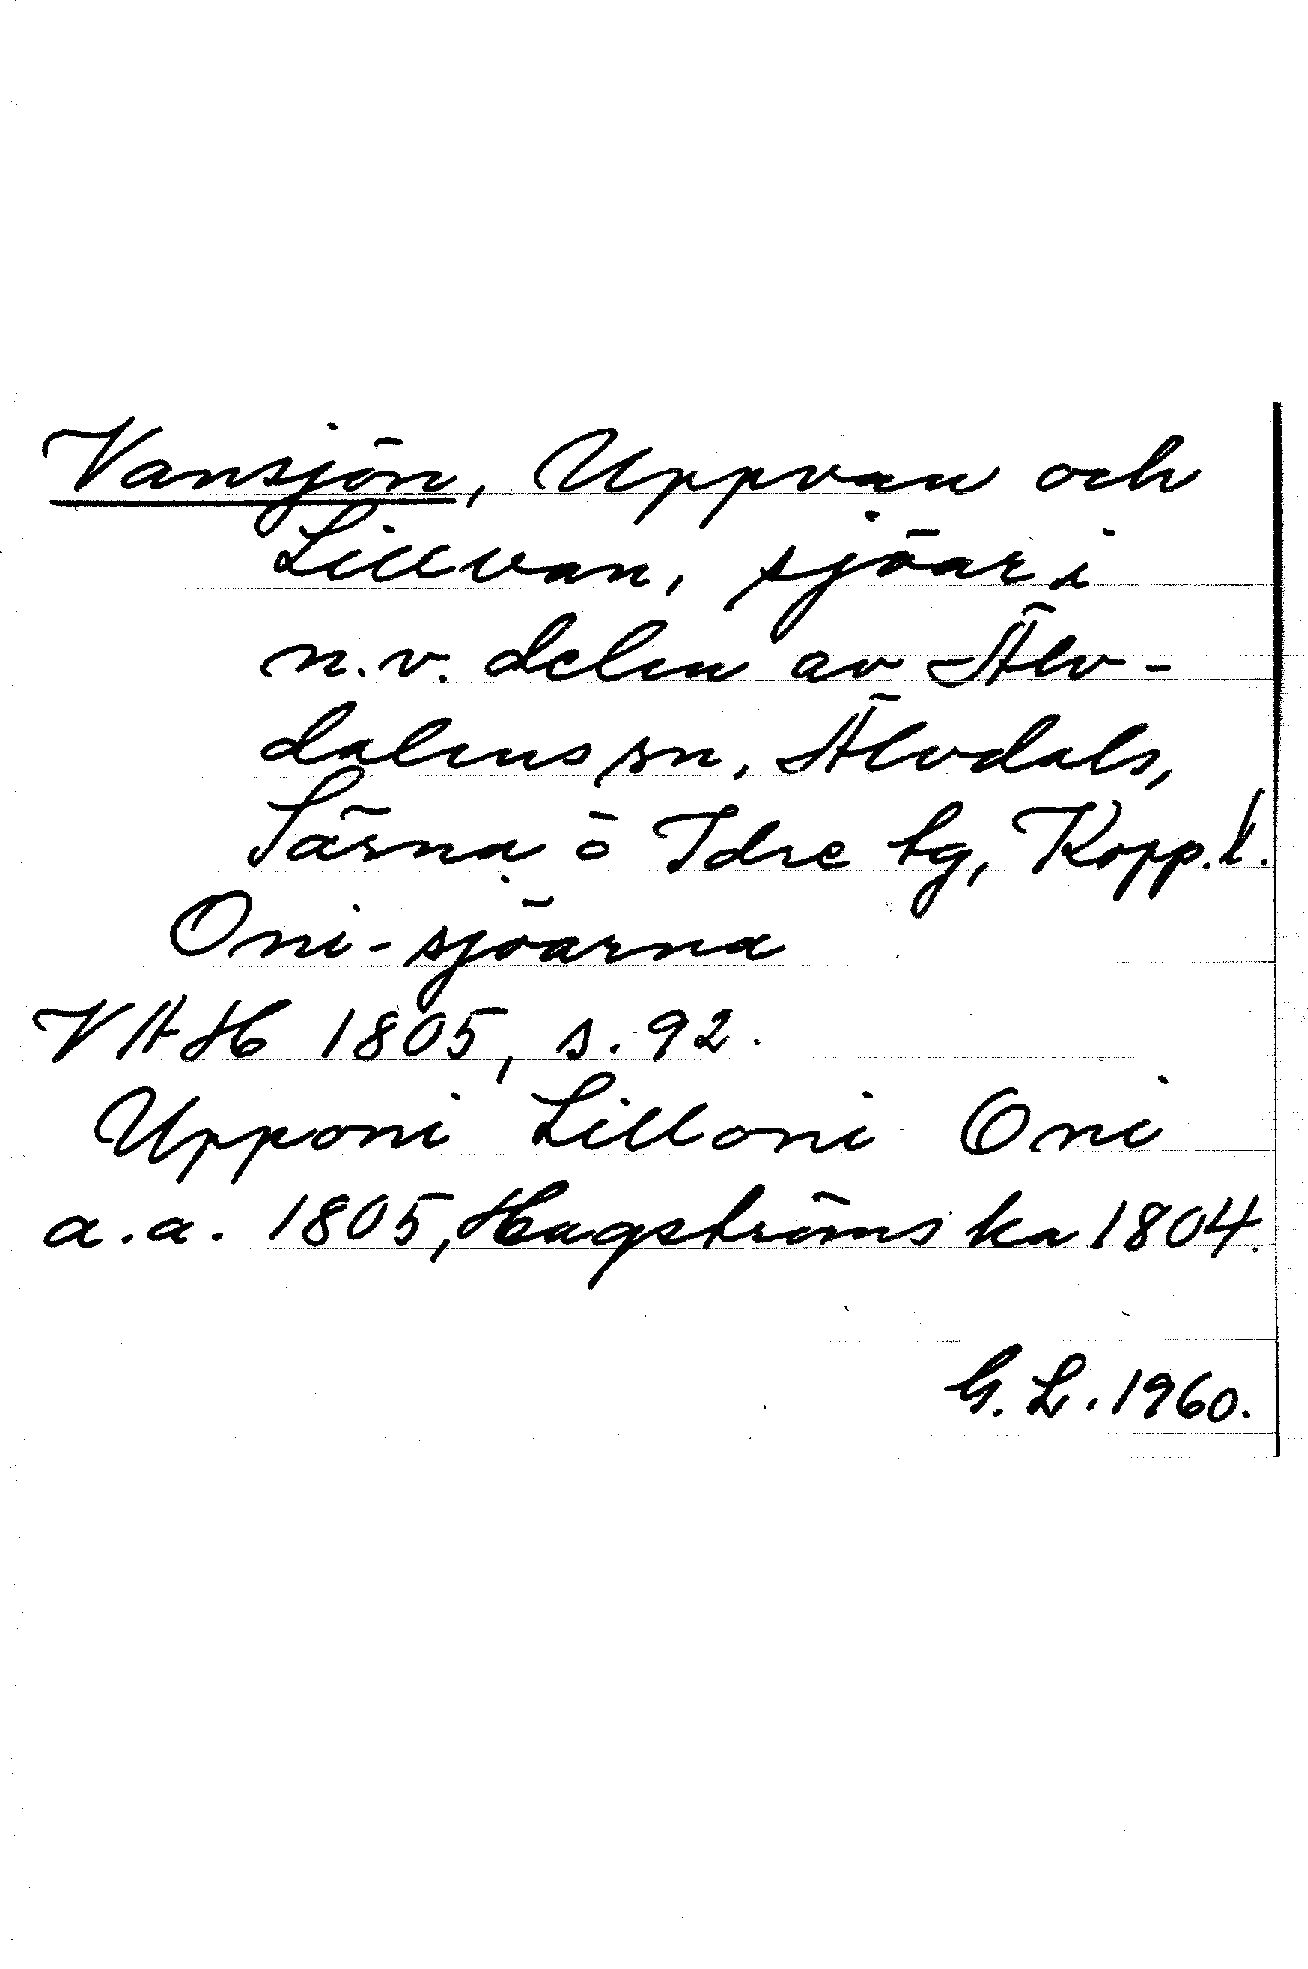 Vansjön, Uppvan och
Lillvan, sjöar i
n.v. delen av Älv-
dalens sn, Älvdals,
Särna o Idre tg, Kopp.l.
Oni-sjöarna
VAH 1805, s. 92.
Upponi Lilloni Oni
a.a. 1805, Hagströms ka 1804.
G. L. 1960.